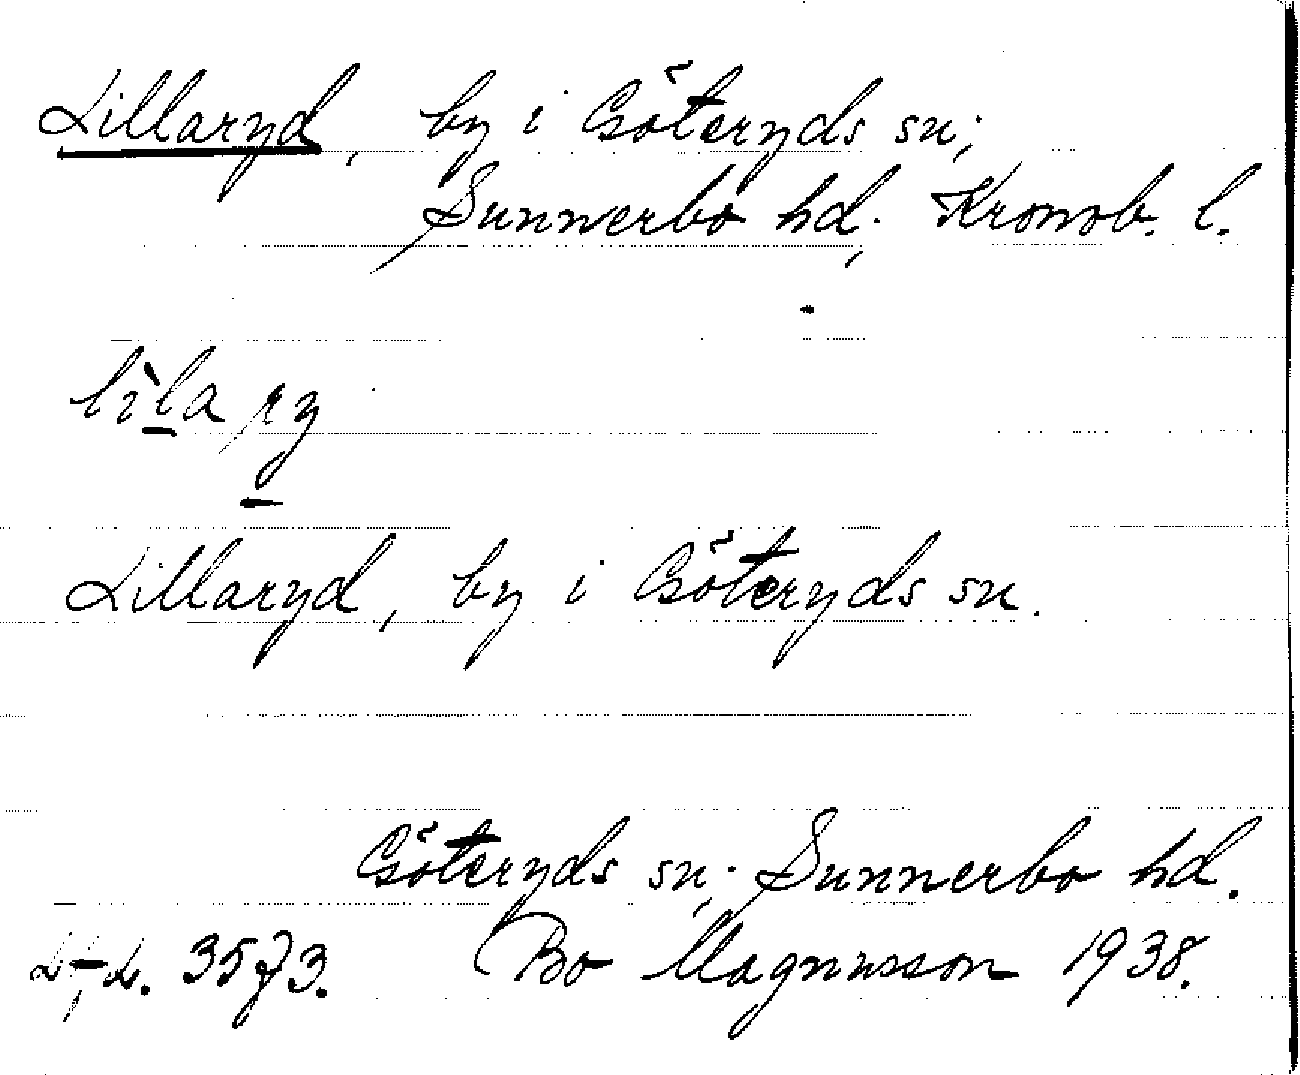 Lillaryd, by i Göteryds sn;
Sunnerbo hd; Kronob. l.
lìla ry
Lillaryd, by i Göteryds sn.
Göteryds sn; Sunnerbo hd.
3573. Bo Magnusson 1938.